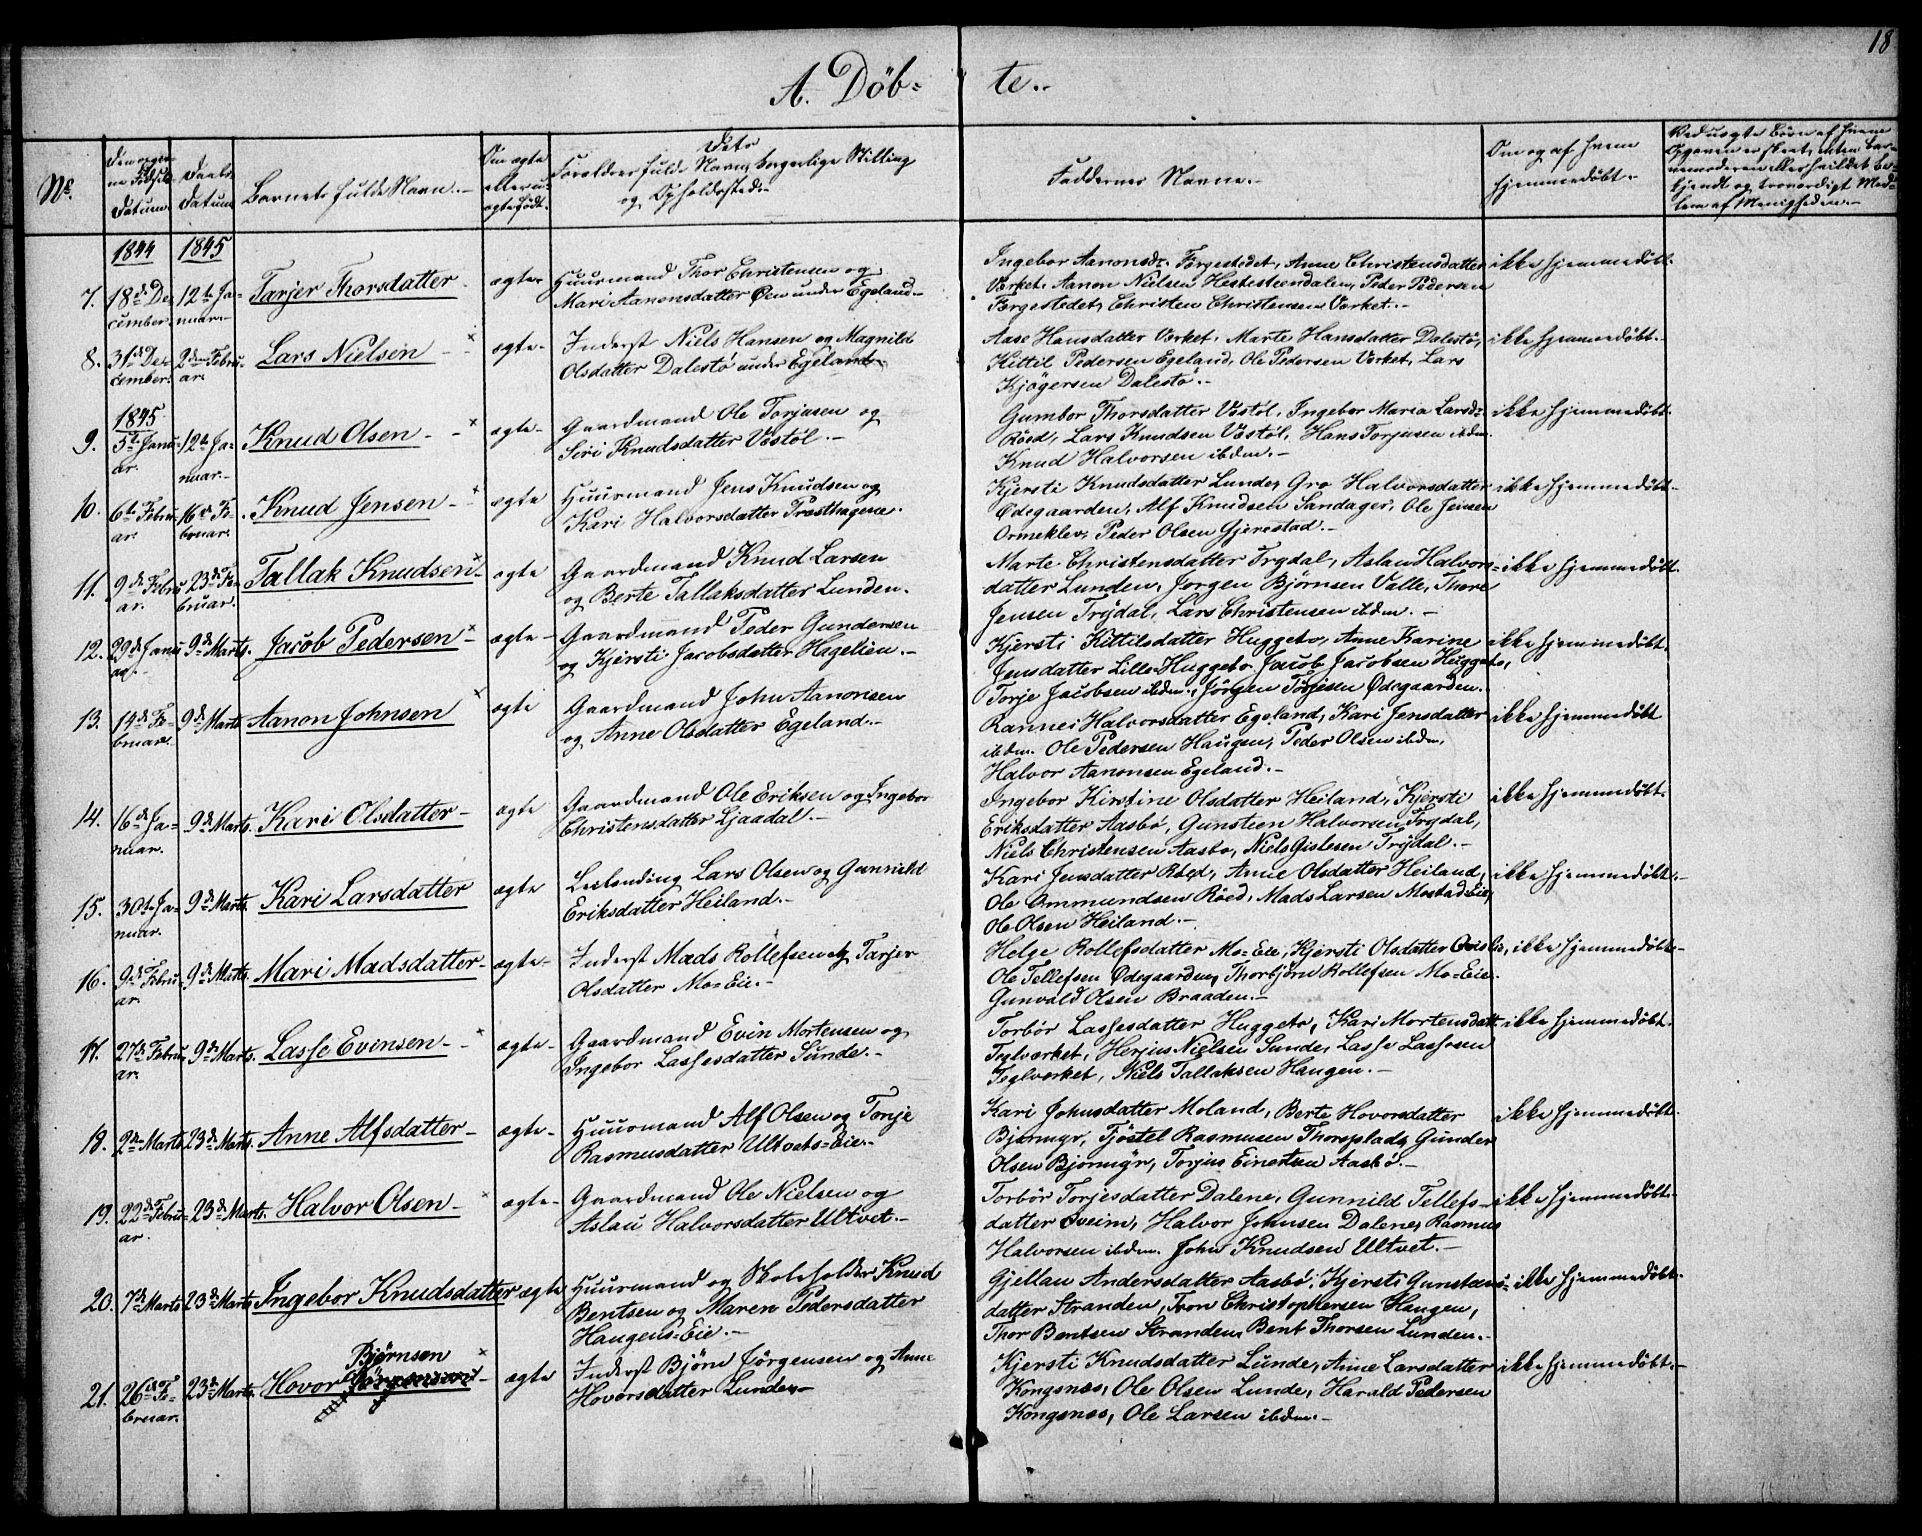 18
A. Döb- te.
Nr.
Fødsels Datum.
Daabs Datum
Barnets fulde Navn.
Om ægte eller uægte født.
Dets Forældres fulde Navn, borgerlige Stilling og Opholdssted.
Faddernes Navne.
Om og af hvem hjemmedøbt.
1844 1845
7. 18de December. 12te Januar. Tarjer Thorsdatter ægte Huurmand Thor Christensen og
Mari Aanonsdatter Øen under Egeland
Ingebor Aanonsdr. Færgestedet, Anne Christensdatter
Værket, Aanon Nielsen Hestesteendalen, Peder Pedersen
Færgestedet, Christen Christensen Værket.
ikke hjemmedøbt.
8. 31te December. 2den Februar. Lars Nielsen ægte Inderst Niels Hansen og Magnild
Olsdatter Dalestø under Egeland
Aase Hansdatter Værket, Marte Hansdatter Dalestø,
Kittil Pedersen Egeland, Ole Pedersen Værket, Lars
Kjøgersen Dalestø.
ikke hjemmedøbt.
1845
9. 5te Januar. 12te Januar. Knud Olsen ægte Gaardmand Ole Torjusen og
Siri Knudsdatter Vøstøl.
Gumbor Thorsdatter Vøstøl, Ingebor Maria Larsdr.
Røed, Lars Knudsen Vøstøl, Hans Torjusen ibdm.
Knud Halvorsen ibdm.
ikke hjemmedøbt.
10. 6te Februar. 16de Februar. Knud Jensen ægte Huurmand Jens Knudsen og
Kari Halvorsdatter Præsthagene.
Kjersti Knudsdatter Lunde, Gro Halvorsdatter
Ødegaarden, Alf Knudsen Sandager, Ole Jensen
Ormeklev, Peder Olsen Gjerestad.
ikke hjemmedøbt.
11. 9de Februar. 23de Februar. Tallak Knudsen ægte Gaardmand Knud Larsen
og Berte Tallaksdatter Lunden.
Marte Christensdatter Trydal, Aslau Halvors-
datter Lunden, Jørgen Bjørnsen Valle, Thore
Jensen Trydal, Lars Christensen ibdm.
ikke hjemmedøbt.
12. 29de Januar. 9de Marts. Jacob Pedersen ægte Gaardmand Peder Gundersen
og Kjersti Jacobsdatter Hagelien.
Kjersti Kittilsdatter Huggeto, Anne Karine
Jensdatter Lille Huggeto, Jacob Jacobsen Huggeto,
Torje Jacobsen ibdm., Jörgen Torjesen Ødegaarden.
ikke hjemmedøbt.
13. 14de Februar. 9de Marts Aanon Johnsen ægte Gaardmand John Aanonsen
og Anne Olsdatter Egeland.
Rannei Halvorsdatter Egeland, Kari Jensdatter
ibdm. Ole Pedersen Haugen, Peder Olsen ibdm,
Halvor Aanonsen Egeland.
ikke hjemmedøbt
14. 16de Januar. 9de Marts. Kari Olsdatter ægte Gaardmand Ole Eriksen og Ingebor
Christensdatter Ljaadal.
Ingebor Kirstine Olsdatter Heiland, Kjersti
Eriksdatter Aasbø, Gunstein Halvorsen Trydal,
Niels Christensen Aasbø, Niels Gislesen Trydal.
ikke hjemmedøbt.
15. 30te Januar. 9de Marts. Kari Larsdatter ægte Leilending Lars Olsen og Gunnild
Eriksdatter Heiland.
Kari Jensdatter Røed, Anne Olsdatter Heiland,
Ole Ommundsen Røed, Mads Larsen Mostad-Eie,
Ole Olsen Heiland.
ikke hjemmedøbt.
16. 9de Februar. 9de Marts. Mari Madsdatter ægte Inderst Mads Rollefsen og Tarjer
Olsdatter Mo-Eie.
Helge Rollefsdatter Mo-Eie, Kjersti Olsdatter
Ole Tellefsen Ødegaarden, Thorbjörn Rollefsen Mo-Eie.
Gunvald Olsen Braaden.
ikke hjemmedøbt.
17. 27de Februar. 9de Marts. Lasse Evensen ægte Gaardmand Evin Mortensen og
Ingebor Lassesdatter Sunde.
Torbør Lassesdatter Huggeto, Kari Mortensdatt.
Teglværket, Herjus Nielsen Sunde, Lasse Lassesen
Teglværket, Niels Tallaksen Haugen.
ikke hjemmedøbt.
18. 2den Marts 23de Marts. Anne Alfsdatter ægte Huurmand Alf Olsen og Tonje
Rasmusdatter Ultvets-Eie.
Kari Johnsdatter Moland, Berte Hovorsdatter
Bjørmyr, Tjöstel Rasmusen Thorsplads, Gunder
Olsen Bjørmyr, Torjus Einertsen Aasbø.
ikke hjemmedøbt.
19. 22de Februar. 23de Marts. Halvor Olsen ægte Gaardmand Ole Nielsen og
Aslau Halvorsdatter Ultvet.
Torbør Torjesdatter Dalene, Gunnild Tellefs-
datter Sveim, Halvor Johnsen Dalene, Rasmus
Halvorsen ibdm. John Knudsen Ultvet.
ikke hjemmedøbt.
20. 7de Marts 23de Marts. Ingebor Knudsdatter ægte Huurmand og Skoleholder Knud
Bentsen og Maren Pedersdatter
Haugens-Eie.
Gjellau Andersdatter Aasbø, Kjersti Gunsteens-
datter Stranden, Tron Christophersen Haugen,
Thor Bentsen Stranden, Bent Thorsen Lunden.
ikke hjemmedøbt.
21. 26de Februar. 23de Marts. Hovor Bjørnsen ægte Inderst Bjørn Jørgensen og Anne
Hovorsdatter Lunde.
Kjersti Knudsdatter Lunde, Anne Larsdatter
Kongsnæs, Ole Olsen Lunde, Harald Pedersen
Kongsnæs, Ole Larsen ibdm.
ikke hjemmedøbt.